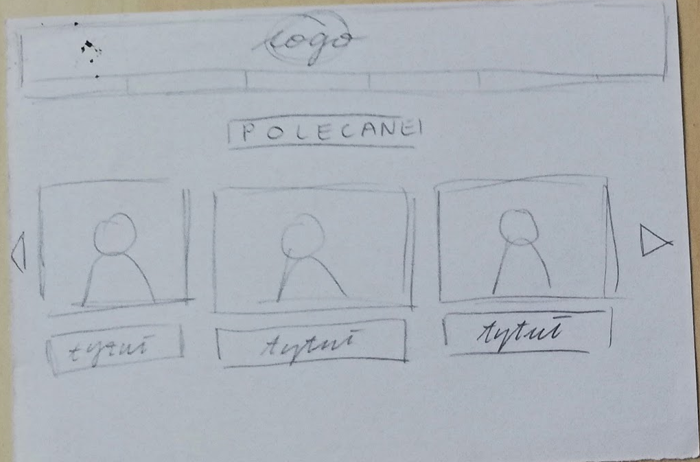 Logo
POLECANE
tytuł tytuł tytuł